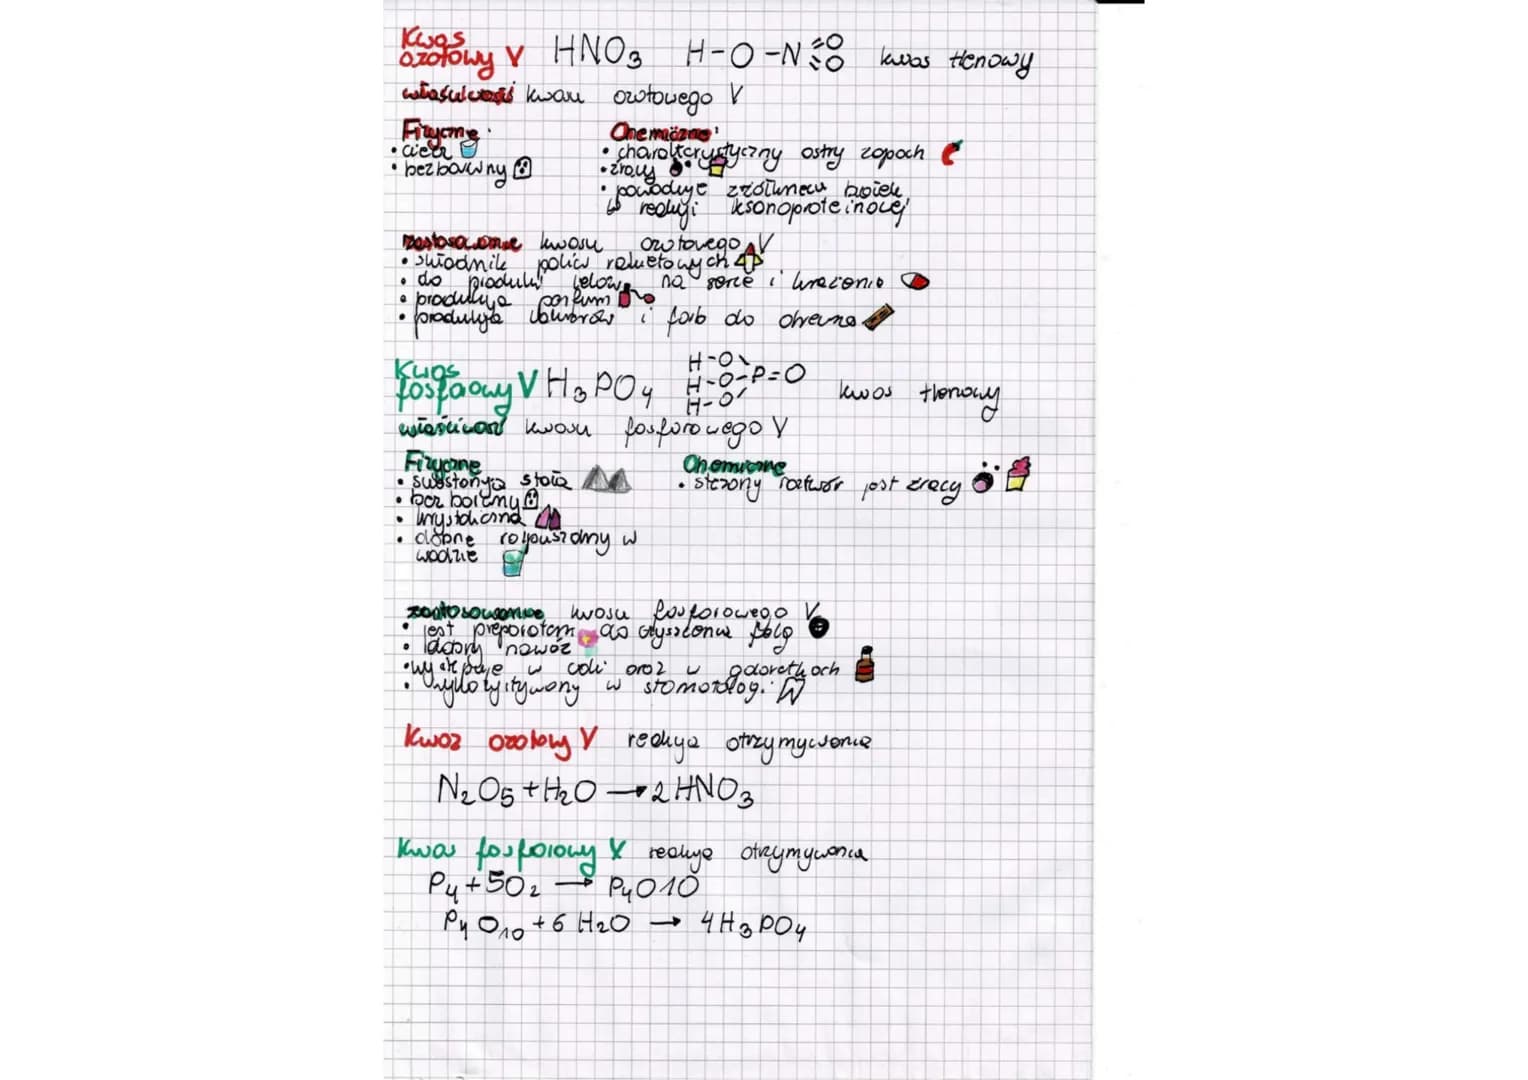 Kwas
azotowy V HNO3 H-O-N=O =O kwas tlenowy
właściwość kwasu azotowego V
Fizyczne:
• ciecz
• bezbarwny
Chemiczne:
• charakterystyczny ostry zapach
• żrący
• powoduje zżółknięcie białek
w reakcji ksantoproteinowej
zastosowanie kwasu azotowego V
• składnik paliw rakietowych
• do produkcji leków na serce i krążenie
• produkcja perfum
• produkcja lakierów i farb do drewna
Kwas
fosforowy V H3PO4 H-O H-O-P=O H-O kwas tlenowy
właściwość kwasu fosforowego V
Fizyczne
• substancja stała
• bez barwny
• krystaliczna
• dobrze rozpuszczalny w
wodzie
Chemiczne
• stężony roztwór jest żrący
zastosowanie kwasu fosforowego V
• jest preparatem do czyszczenia felg
• dobry nawóz
• występuje w coli oraz w galaretkach
• wykorzystywany w stomatologi
Kwas azotowy V reakcja otrzymywania
N2O5 + H2O → 2HNO3
Kwas fosforowy V reakcja otrzymywania
P4 + 5O2 → P4O10
P4O10 + 6H2O → 4H3PO4